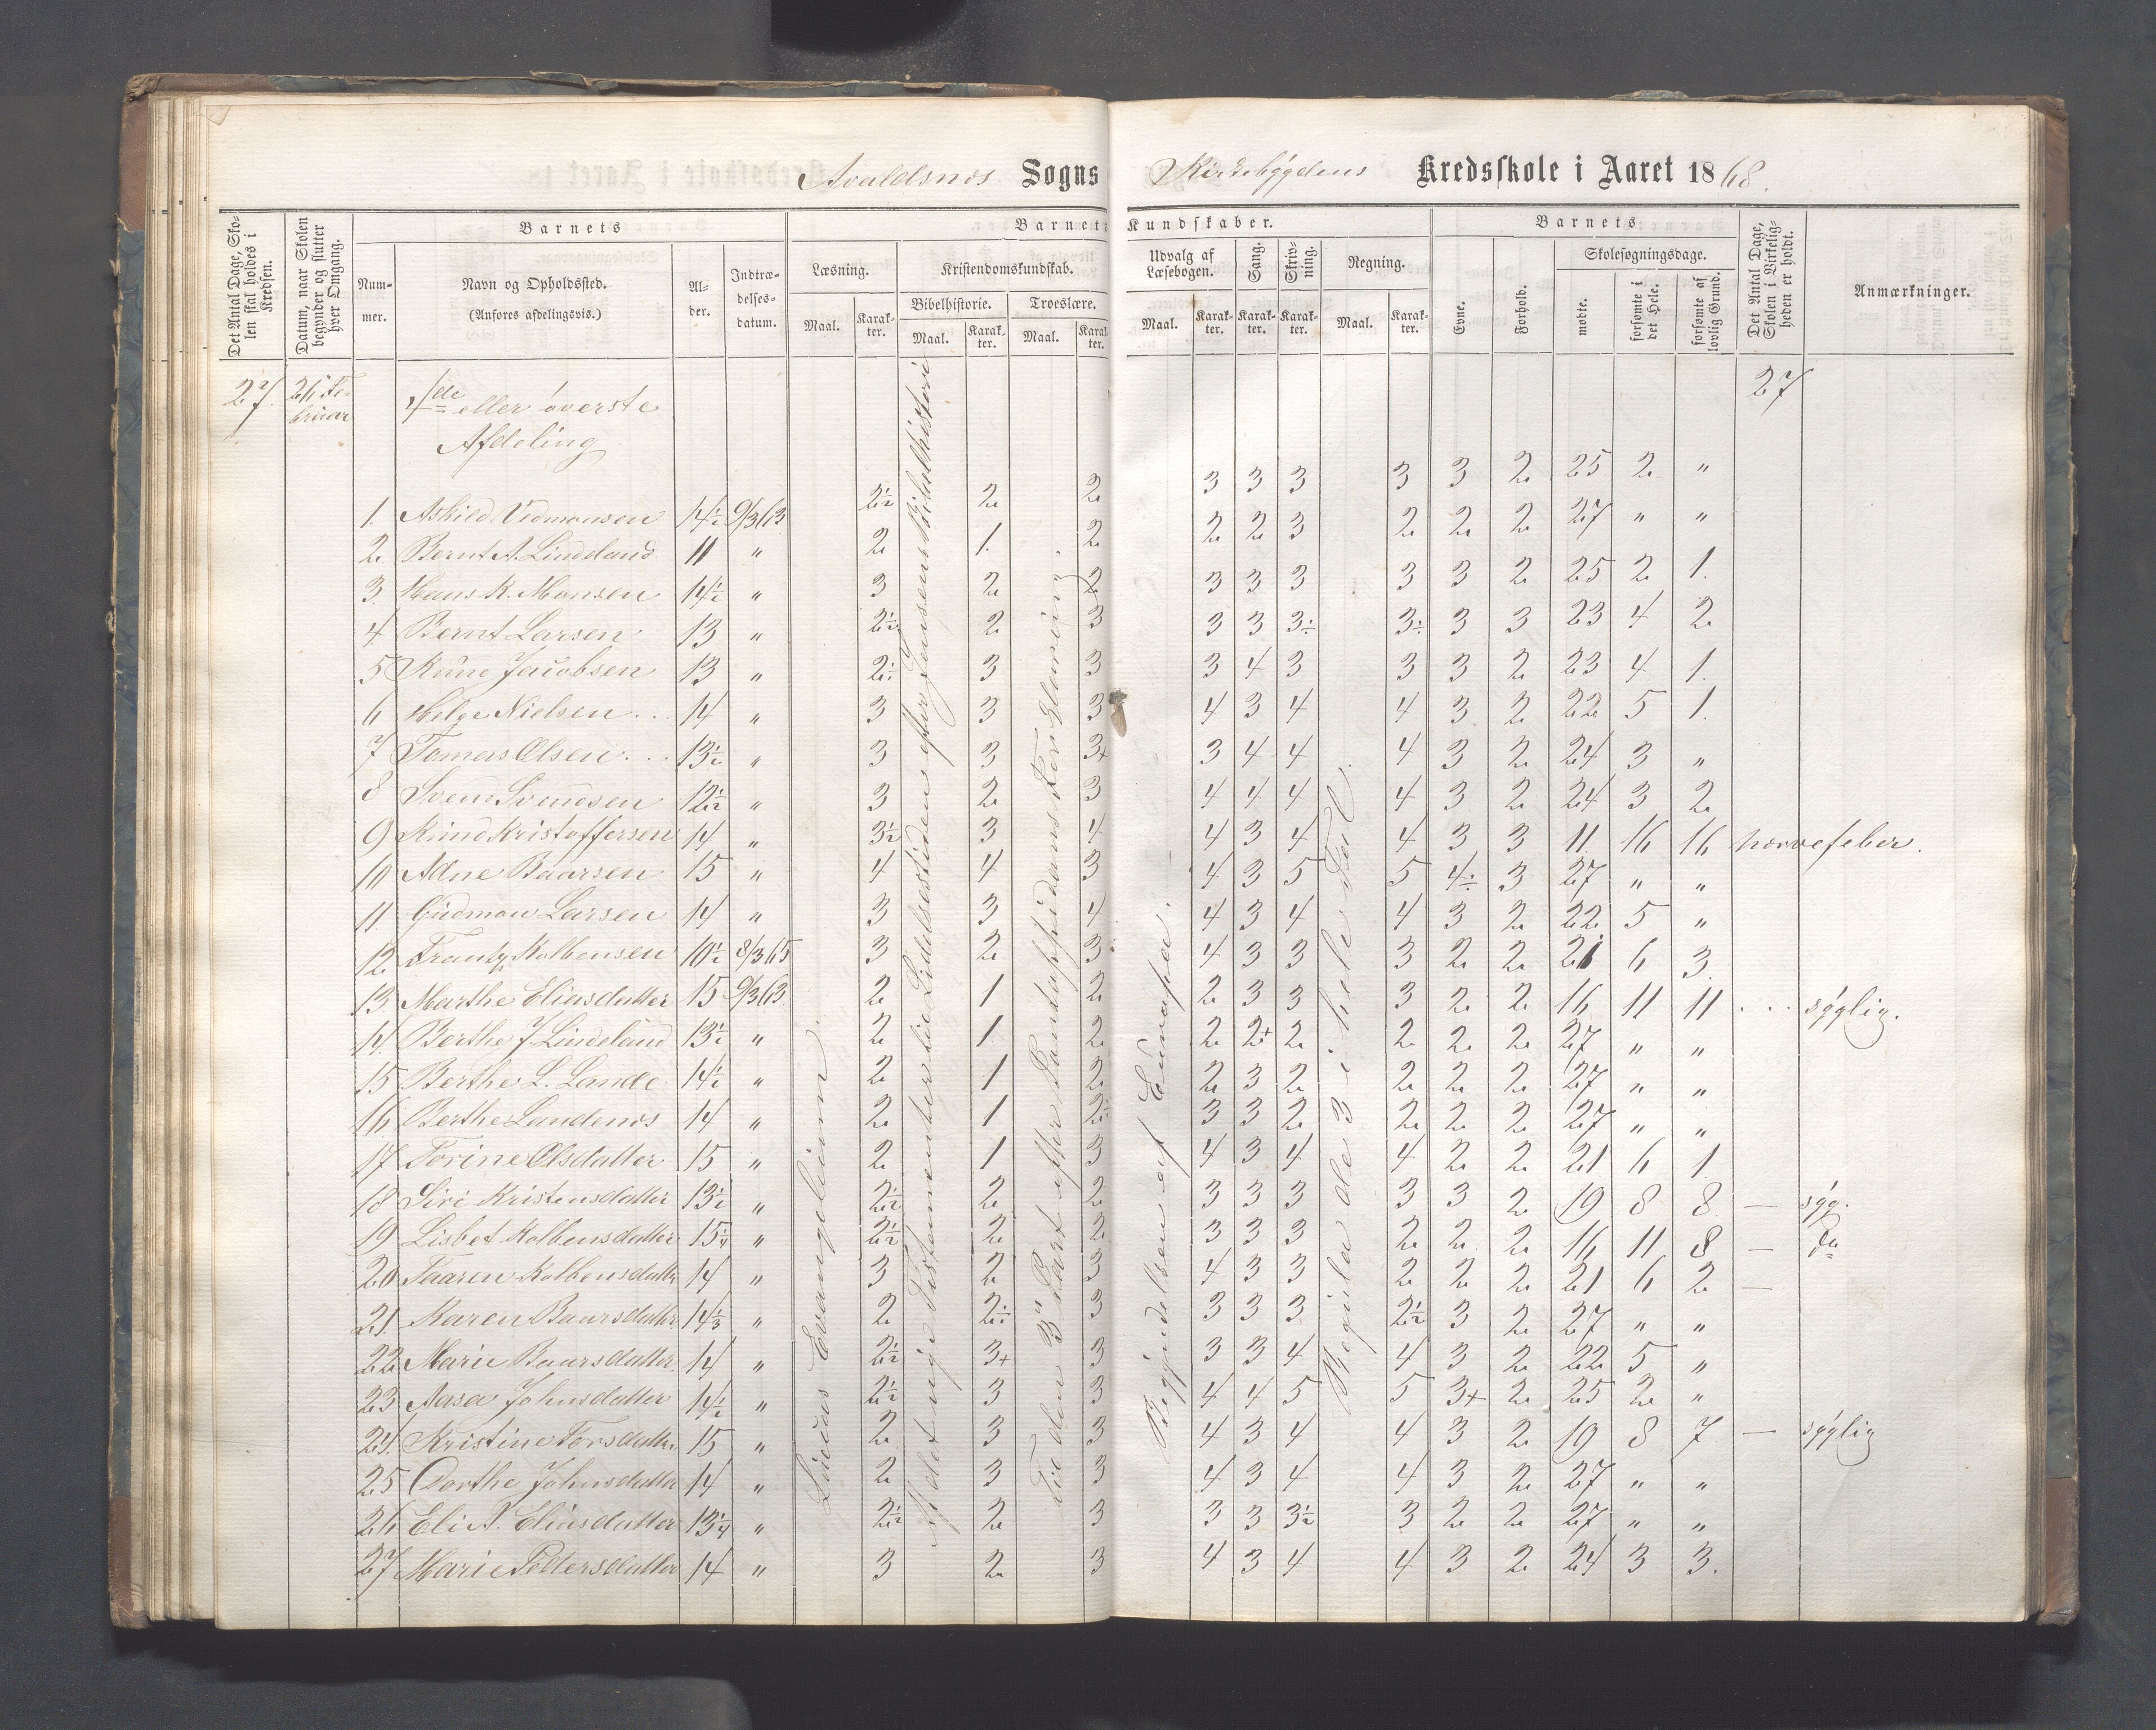 Avaldsnes Sogns Kirkebygdens Kredsskole i Aaret 1868.
Det Antal Dage, Skolen skal holdes i Kredsen.
Datum, naar Skolen begynder og slutter hver Omgang.
Barnets
Nummer.
Navn og Opholdssted.
(Anføres afdelingsvis.)
Alder.
Indtrædelsesdatum.
Barnets Kundskaber.
Læsning.
Maal.
Karakter.
Kristendomskundskab.
Bibelhistorie.
Maal.
Karakter.
Troeslære.
Maal.
Karakter.
Udvalg af Læsebogen.
Maal.
Karakter.
Sang.
Karakter.
Skrivning.
Karakter.
Regning.
Maal.
Karakter.
Barnets
Evne.
Forhold.
Skolesøgningsdage.
mødte.
forsømte i det Hele.
forsømte af lovlig Grund.
Det Antal Dage, Skolen i Virkeligheden er holdt.
Anmærkninger.
27. 26 Februar 4de eller øverste Afdeling 27
1. Askild Vedmansen 14½ 9/3 63 2½ 2 2 3 3 3 3 3 2 25 2 "
2. Bernt A. Lindeland 11 " 2 1. 2 2 2 3 2 2 2 27 " "
3. Hans K. Monsen 14½ " 3 2 2 3 3 3 3 3 2 25 2 1.
4 Bernt Larsen 13 " 2½ 2 3 3 3 3÷ 3÷ 3 3 23 4 2
5 Rune Jacobsen 13 " 2÷ 3 3 3 4 3 3 3 2 23 4 1.
6 Helge Nielsen 14 " 3 3 3 4 3 4 4 3 2 22 5 1.
7 Tomas Olsen 13½ " 3 3 3+ 3 4 4 4 3 2 24 3 "
8 Svend Svendsen 12½ " 3 2 3 4 4 4 4 3 2 24 3 2
9 Knud Kristoffersen 14 " 3½ 3 4 4 3 4 4 3 3 11 16 16 nervefeber.
10 Adne Baarsen 15 " 4 4 3 4 3 5 5 4÷ 3 27 " "
11. Gudmon Larsen 14 " 3 3 4 4 3 4 4 3 2 22 5 "
12 Frantz Kolbensen 10½ 8/3 65 3 2 3 4 3 3 3 2 2 21 6 3
13 Marthe Eliasdatter 15 9/3 63 2 1 2 2 3 3 3 2 2 16 11 11 syglig.
14. Berthe J. Lindeland 13½ " 2 1. 2 2 2+ 2 2 2 2 27 " "
15 Berthe L. Lande 14½ " 2 1 2 2 3 2 2 2 2 27 " "
16 Berthe Landenes 14 " 2 1 2÷ 3 3 2 2 2 2 27 " "
17 Torine Olsdatter 15 " 2 1 3 4 3 4 4 2 2 21 6 1
18 Siri Kristensdatter 13½ " 2½ 2 2 3 3 3 3 3 2 19 8 8 — syg.
19 Lisbet Kolbensdatter 15¼ " 2½ 2 2 3 3 3 2 2 2 16 11 8 — do
20 Taaren Kolbensdatter 14 " 3 2 3 4 3 3 2 2 2 21 6 2 —
21. Karen Baarsdatter 14⅓ " 2 2÷ 3 3 3 3 2½ 3 2 27 " "
22 Marie Baarsdatter 14 " 2½ 3+ 3 3 3 4 4 3 2 22 5 "
23 Aasa Johnsdatter 14½ " 2½ 3 3 4 4 5 5 3+ 2 25 2 "
24. Kristine Torsdatter 15 " 2 3 3 4 3 4 4 3 2 19 8 7 — syglig
25 Dorthe Johnsdatter 14 " 2 3 3 4 3 4 4 3 2 27 " "
26 Eli A. Eliasdatter 13¼ " 2½ 2 3 3 3 3½ 3 2 2 27 " "
27 Marie Pedersdatter 14 " 3 2 3 4 3 4 4 3 2 24 3 3.
Lucas Evangelium.
Af det nye Testamente til Lidelsestiden efter Jensens Bibelhistorie
Til den 3die Part efter Pontoppidans Forklaring.
Begyndelsen af Europa.
Regula de 3 i hele Tal.